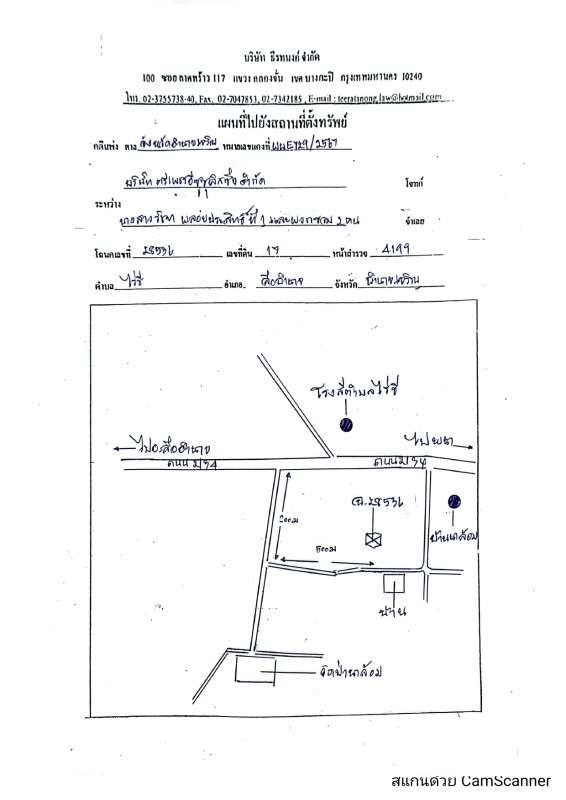 บริษัท ธีรทนงค์ จำกัด
100 ซอย ลาดพร้าว 117 แขวง คลองจั่น เขต บางกะปิ กรุงเทพมหานคร 10240
โทร. 02-3755738-40, Fax. 02-7047853, 02-7342185 , E-mail : teeratanong.law@hotmail.com
แผนที่ไปยังสถานที่ตั้งทรัพย์
คดีแพ่ง ศาล จังหวัดอำนาจเจริญ หมายเลขแดงที่ ผบE729/2567
บริษัท จำกัด โจทก์
ระหว่าง
นางสาว พลอยประสิทธิ์ ที่ 1 และพวกรวม 2 คน จำเลย
โฉนดเลขที่ 28536 เลขที่ดิน 17 หน้าสำรวจ 4199
ตำบล ไร่ขี อำเภอ ลืออำนาจ จังหวัด อำนาจเจริญ
โรงสีตำบลไร่ขี
ไปอ.ลืออำนาจ
ไปพนา
ถนน ม34
ถนน ม34
ฉ.28536
200ม
500ม
บ้าน
วัดป่า
สแกนด้วย CamScanner